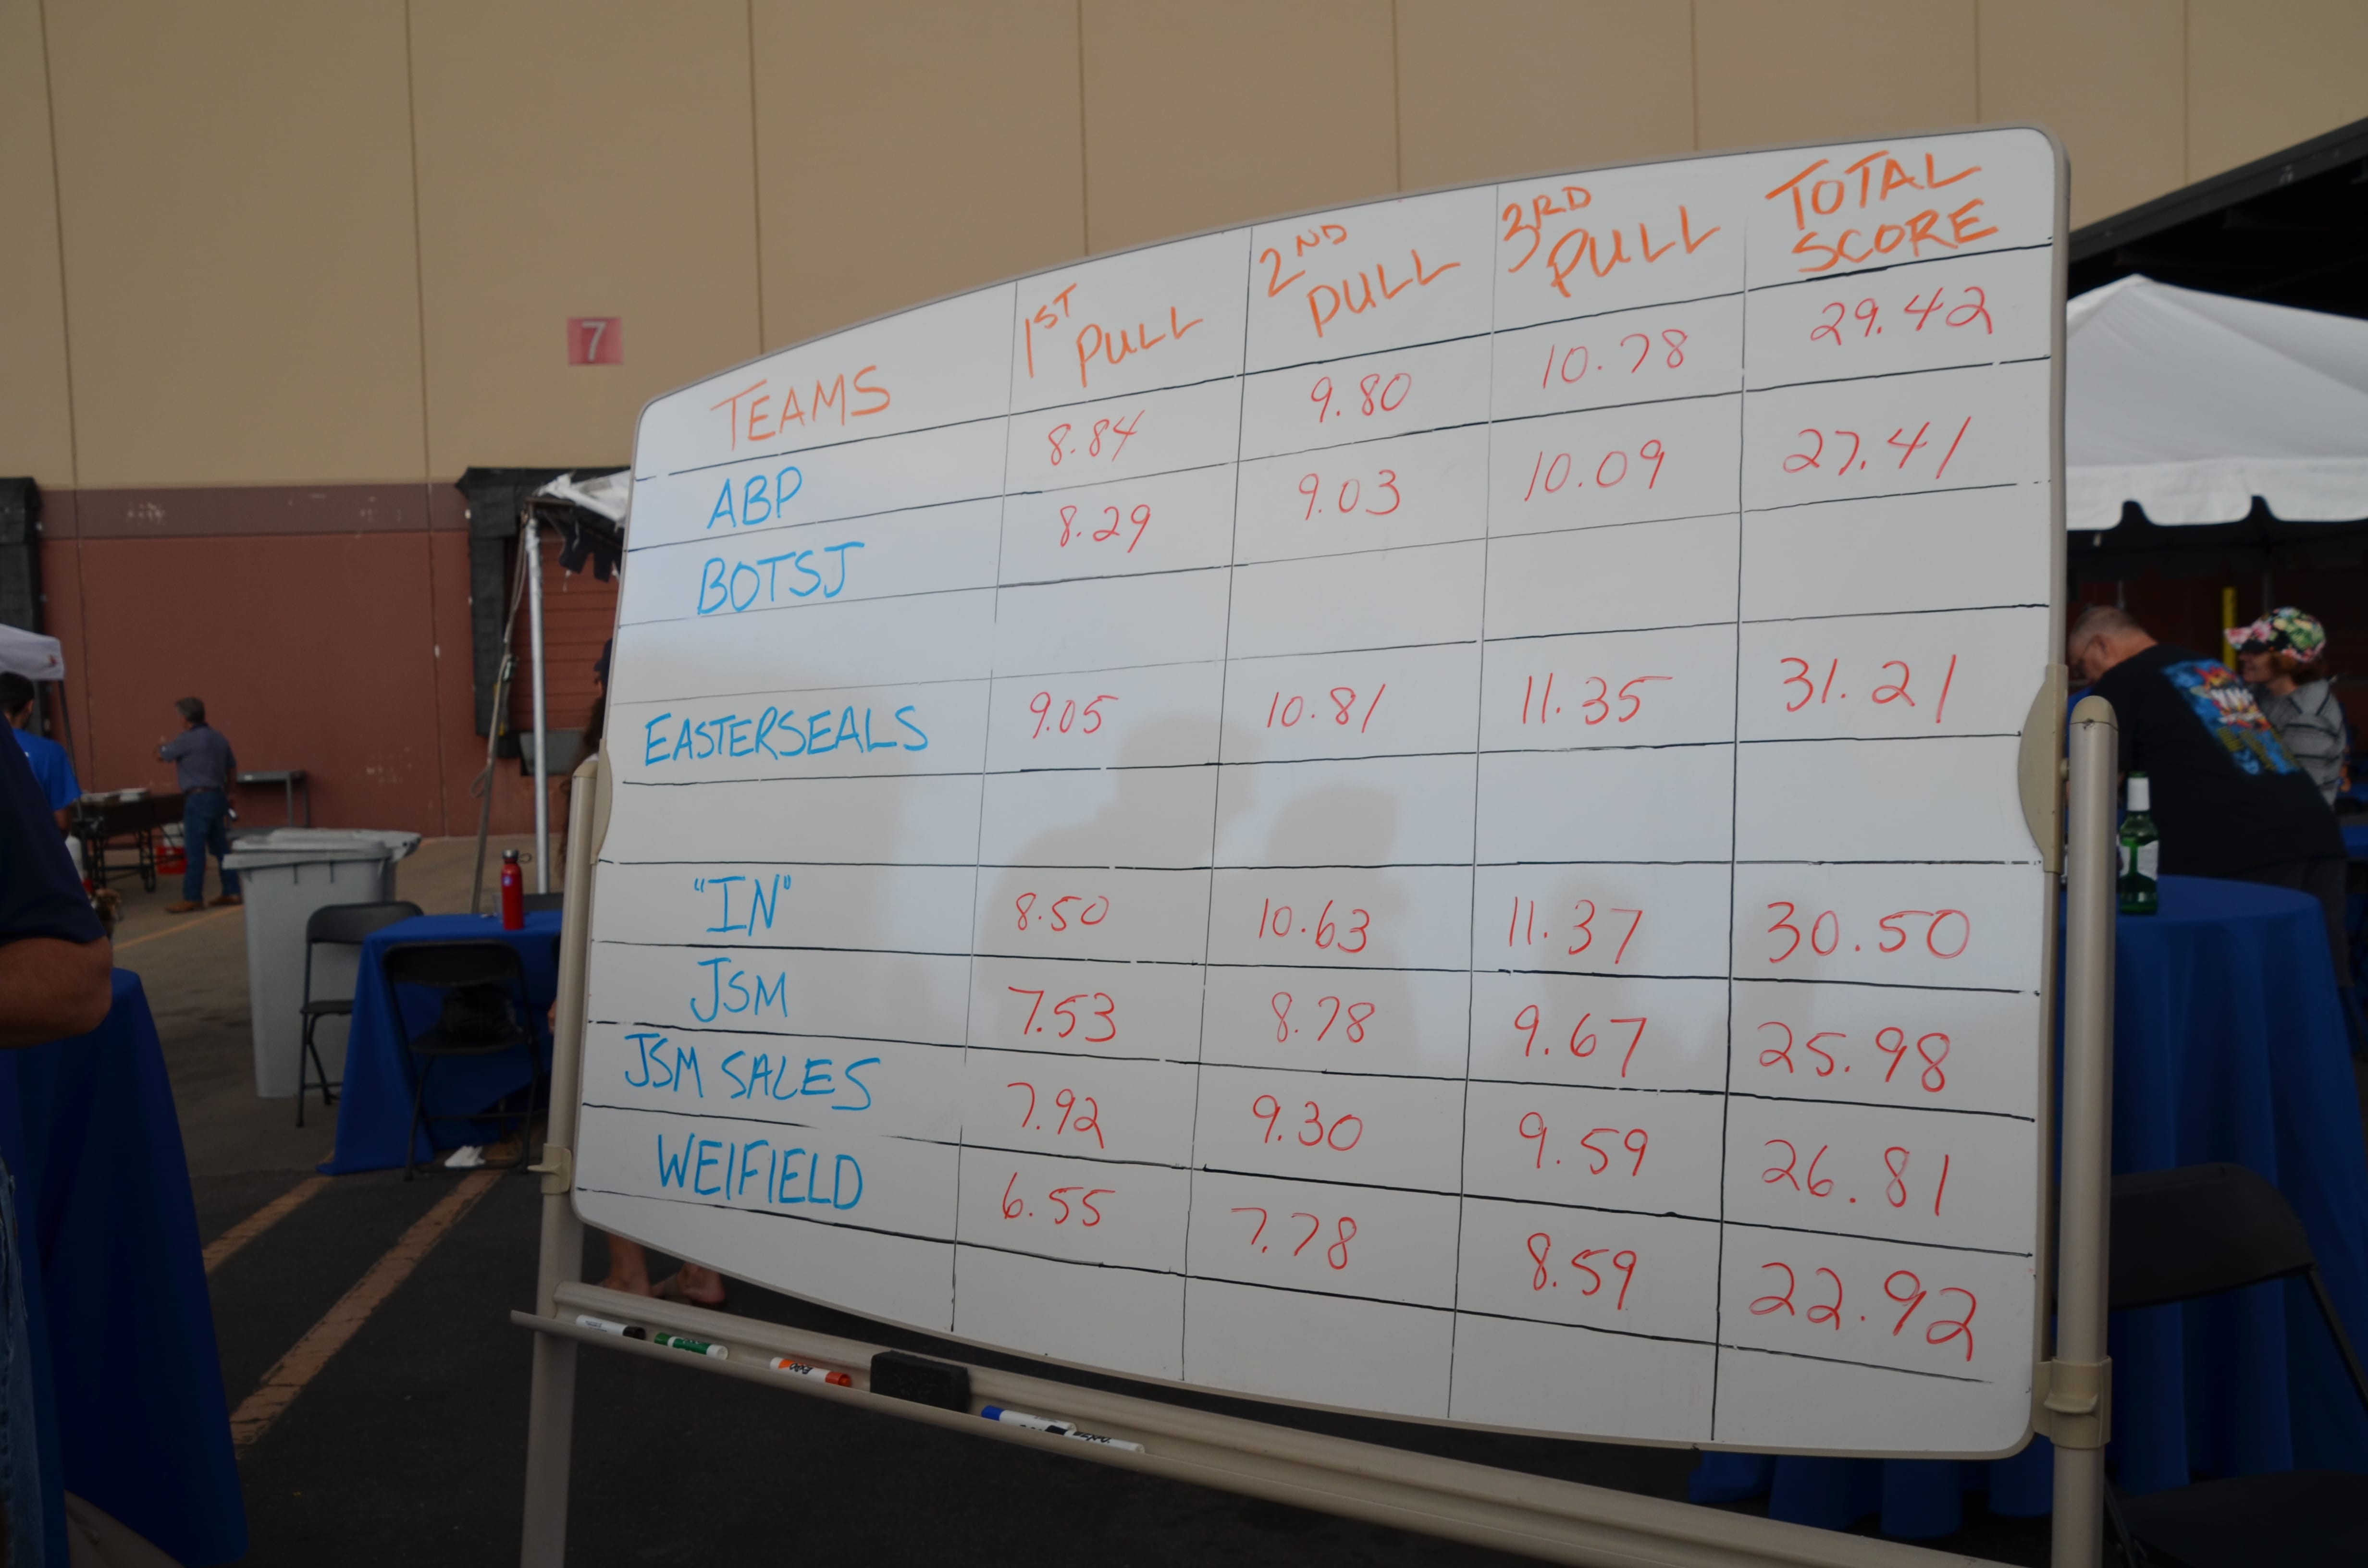 7
TEAMS 1ST PULL 2ND PULL 3RD PULL TOTAL SCORE
ABP 8.84 9.80 10.78 29.42
BOTSJ 8.29 9.03 10.09 27.41
EASTERSEALS 9.05 10.81 11.35 31.21
"IN" 8.50 10.63 11.37 30.50
JSM 7.53 8.78 9.67 25.98
JSM SALES 7.92 9.30 9.59 26.81
WEIFIELD 6.55 7.78 8.59 22.92